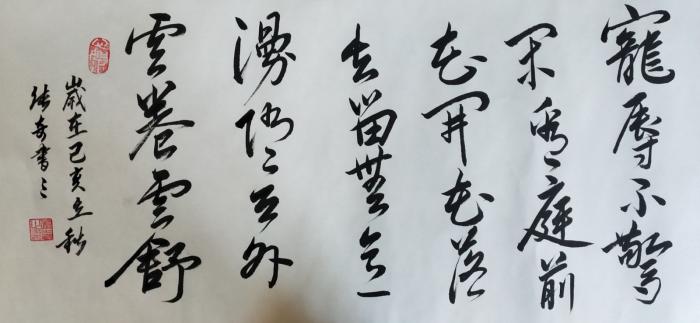 寵辱不驚
閑看庭前
花開花落
去留無意
漫随天外
雲卷雲舒
歲在己亥立秋
張奇書之